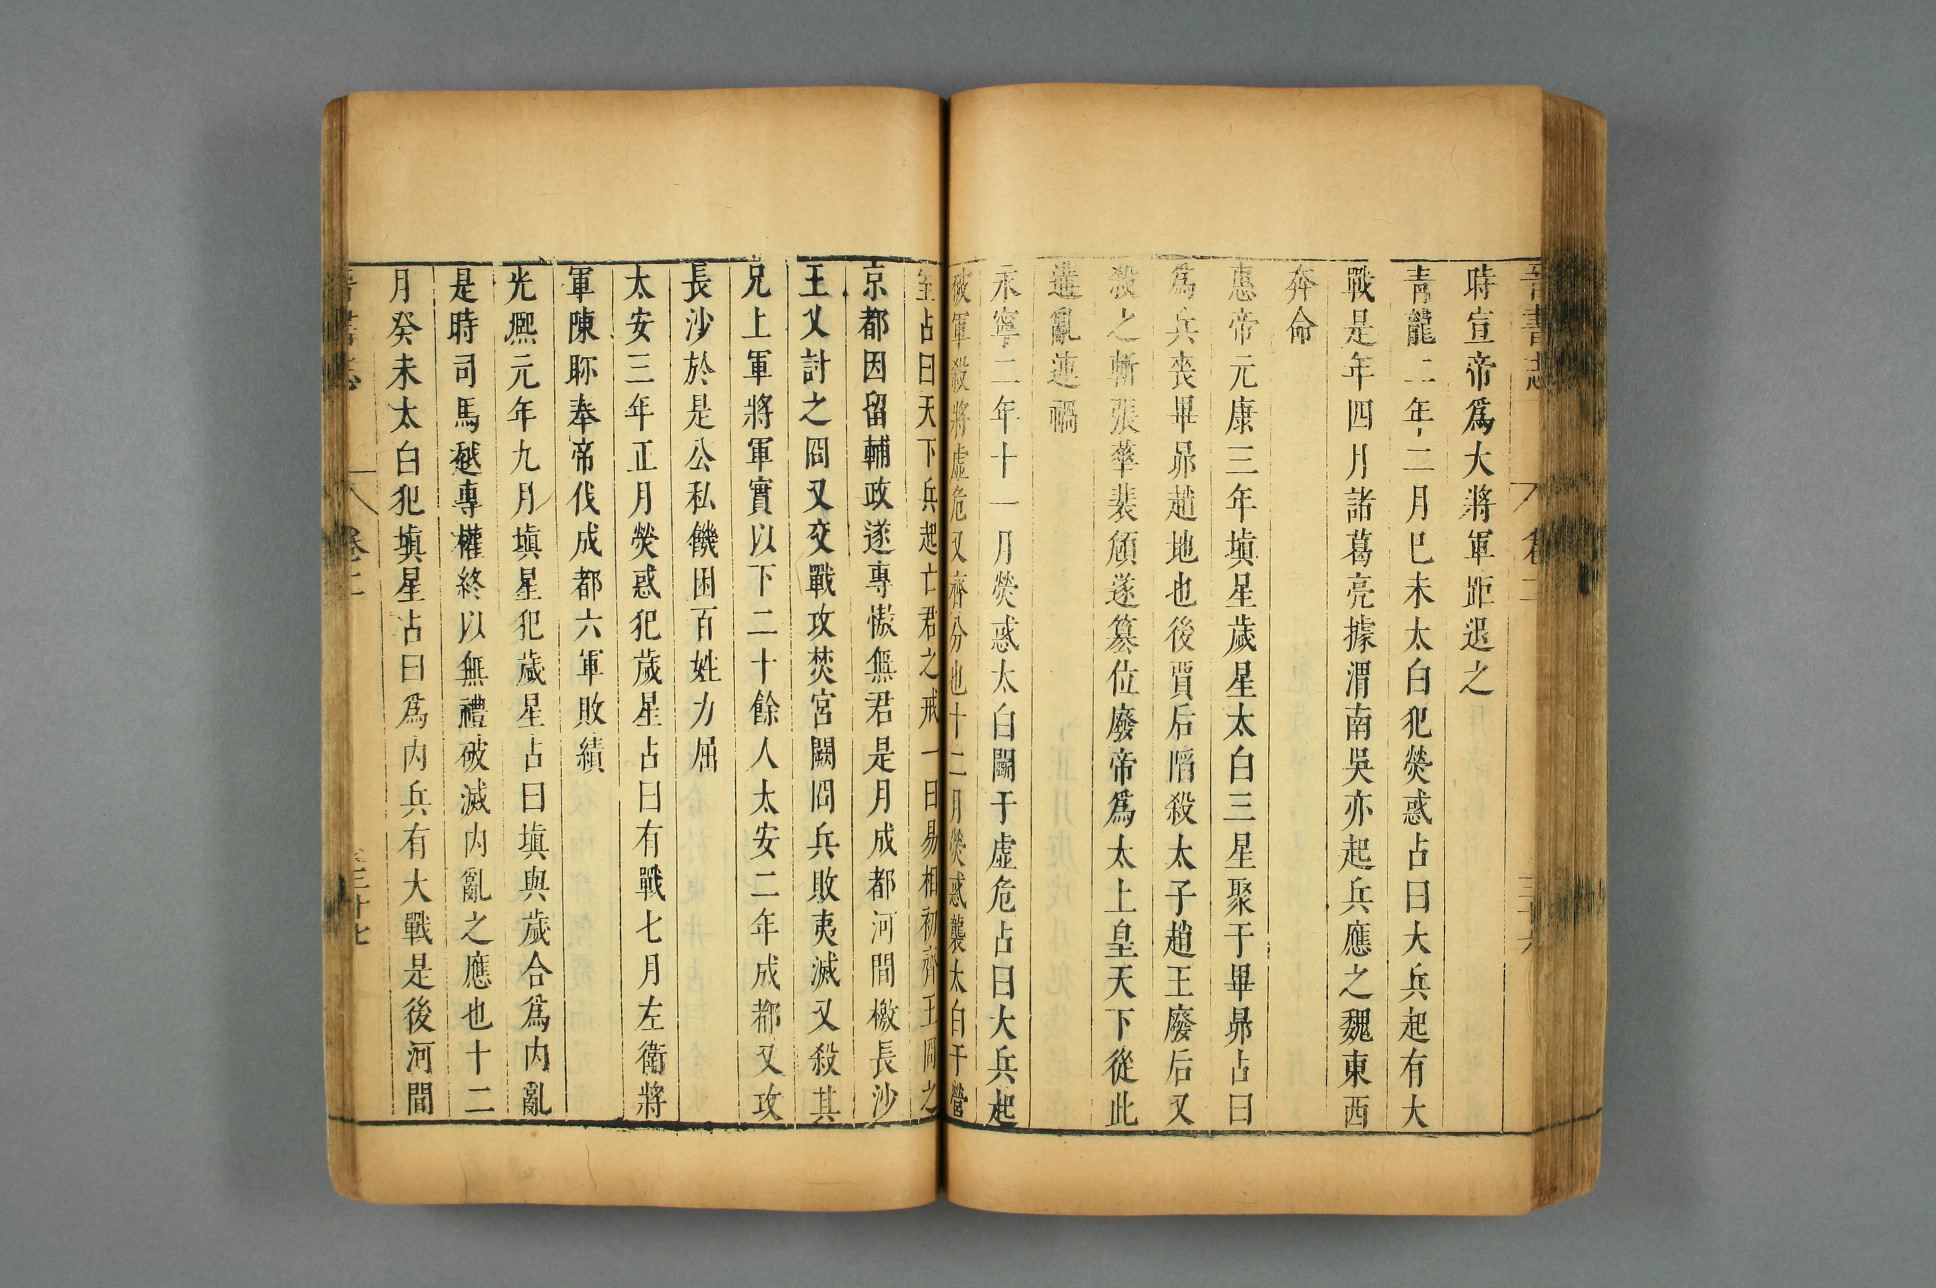 晉書志 卷二 三十六
時宣帝爲大將軍距退之
青龍二年二月巳未太白犯熒惑占曰大兵起有大
戰是年四月諸葛亮據渭南吳亦起兵應之魏東西
奔命
惠帝元康三年塡星歲星太白三星聚于畢昴占曰
爲兵喪畢昴趙地也後賈后䧟殺太子趙王廢后又
殺之斬張華裴頠遂簒位廢帝爲太上皇天下從此
遘亂連禍
永寧二年十一月熒惑太白鬭于虛危占曰大兵起
破軍殺將虛危又齊分也十二月熒惑襲太白于營
室占曰天下兵起亡君之戒一曰易相初齊王冏之
京都因留輔政遂專慠無君是月成都河間檄長沙
王乂討之冏乂交戰攻焚宮闕冏兵敗夷滅又殺其
兄上軍將軍實以下二十餘人太安二年成都又攻
長沙於是公私饑困百姓力屈
太安三年正月熒惑犯歲星占曰有戰七月左衛將
軍陳眕奉帝伐成都六軍敗績
光熙元年九月塡星犯歲星占曰塡與歲合爲內亂
是時司馬越專權終以無禮破滅內亂之應也十二
月癸未太白犯塡星占曰爲內兵有大戰是後河間
晉書志 卷二 三十七